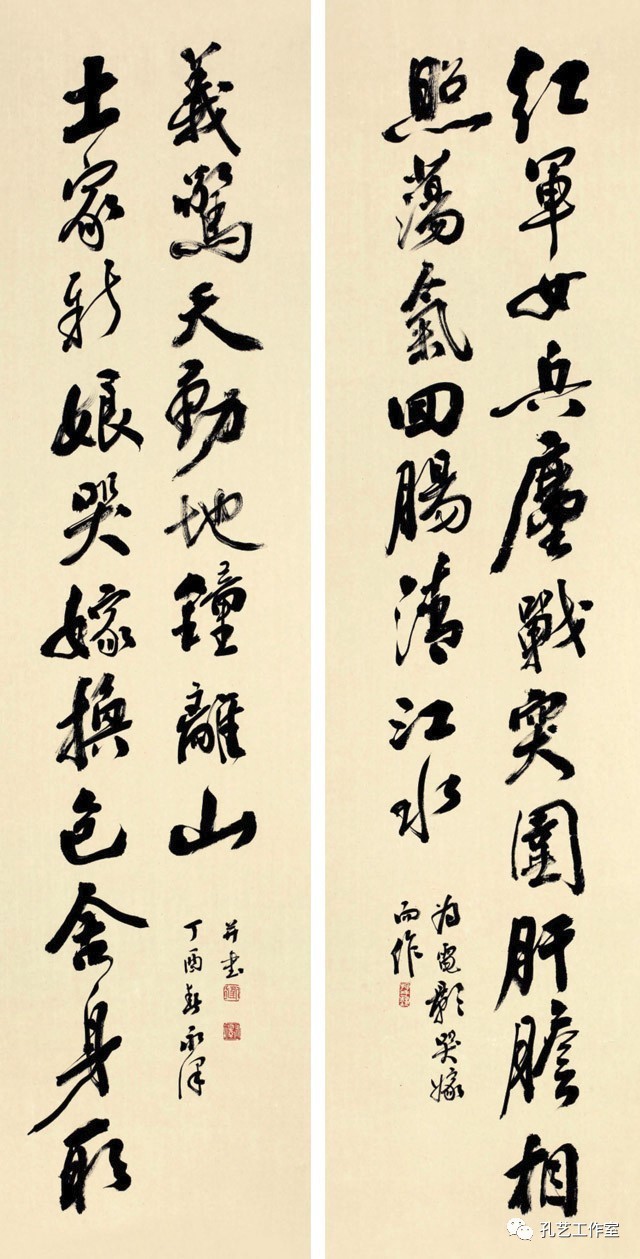 紅軍女兵鏖戰突圍肝膽相
照蕩氣回腸清江水
為電影哭嫁
而作
土家新娘哭嫁換色舍身取
義驚天動地鐘離山
丁酉春永澤
并書
孔艺工作室